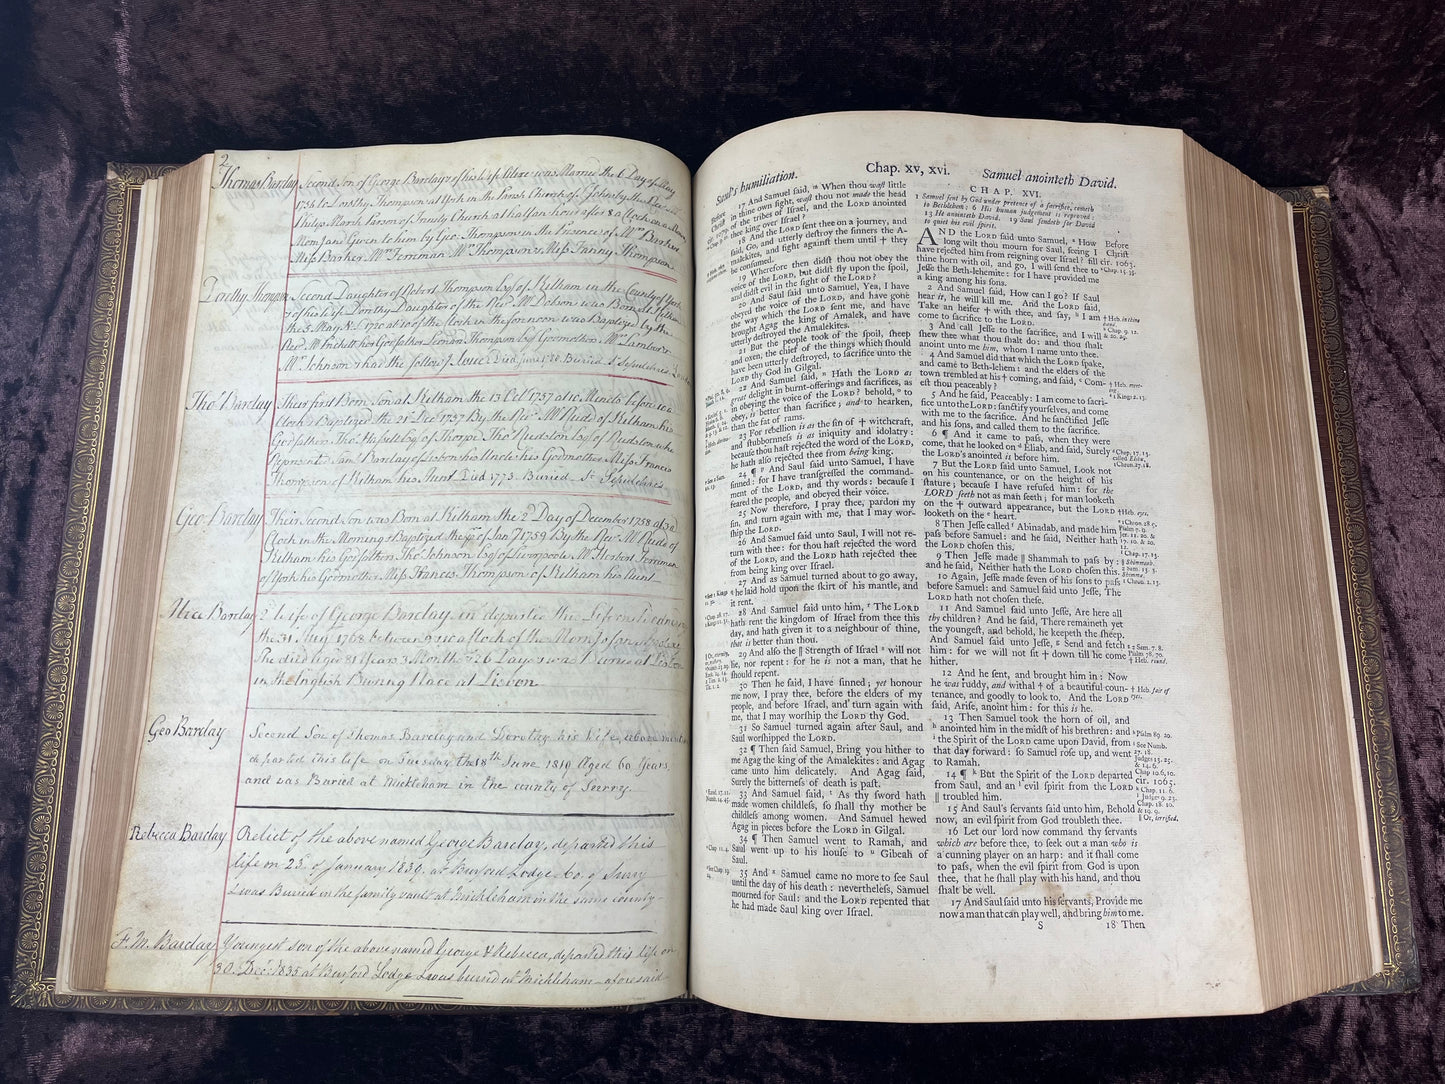 2
Thomas Barclay Second Son of George Barclay & of his Wife Alice was Married the 6 Day of May
1756 to Dorothy Thompson at York in the Parish Church of
Philip Minor Canon of Church at half an hour after 8 a Clock on a
Morn. Jane Given to him by Geo: Thompson in the Presence of Mrs Barker
Miss Barker Mr Terriman Mr Thompson & Miss Fanny Thompson
Dorothy Thompson Second Daughter of Robert Thompson Esqr. of Kelham in the County of York
& of his Wife Dorothy Daughter of the Revd. Mr Dobson was Born at Kelham
the 5 May 1720 at 10 of the Clock in the forenoon was Baptized by the
Revd. Mr Prickett her Godfather Leman Thompson Esqr. Godmother Mrs Lambert &
Mrs Johnson Died June Buried St. Sepulchres
Thos. Barclay Their first Born Son at Kelham the 13 Oct. 1757 at 10 Minits before 10 a
Clock & Baptized the 21 Dec. 1757 By the Revd. Mr Rudd of Kelham his
Godfathers Thos. Hasell Esqr. of Thorpe Thos. Rudston Esqr. of Rudston who
Represents Saml. Barclay of Lisbon his Uncle his Godmother Miss Francis
Thompson of Kelham his Aunt Died 1775. Buried St. Sepulchres
Geo. Barclay Their Second Son was Born at Kelham the 2d. Day of December 1758 at 3 a
Clock in the Morning & Baptized the of Jany 1759 By the Revd. Mr Rudd of
Kelham his Godfathers Thos. Johnson Esqr. of Liverpoole Mr Herbert Terriman
of York his Godmother Miss Francis Thompson of Kelham his Aunt
Alice Barclay Wife of George Barclay, departed this Life
the 31 May 1768 between 9 & 10 a Clock of the Morn
She died Aged 81 Years 3 Months & 26 Days & was Buried at Lisbon
in the English Buring Place at Lisbon
Geo Barclay Second Son of Thomas Barclay and Dorothy his Wife, above
departed this life on Tuesday the 18th June 1819 Aged 60 Years,
and was Buried at Mickleham in the county of Surry.
Rebecca Barclay Relict of the above named George Barclay, departed this
life on 25 of January 1839, at Burford Lodge Co. of Surry
& was Buried in the family vault at Mickleham in the same county—
F. M. Barclay Youngest son of the above named George & Rebecca, departed this life on
30. Decr. 1835 at Burford Lodge & was buried at Mickleham aforesaid
Saul's humiliation. Chap. xv, xvi. Samuel anointeth David.
Before
Christ
17 And Samuel said, When thou wast little
in thine own sight, wast thou not made the head
of the tribes of Israel, and the LORD anointed
thee king over Israel?
18 And the LORD sent thee on a journey, and
said, Go, and utterly destroy the sinners the A-
malekites, and fight against them until † they
be consumed.
19 Wherefore then didst thou not obey the
voice of the LORD, but didst fly upon the spoil,
and didst evil in the sight of the LORD?
20 And Saul said unto Samuel, Yea, I have
obeyed the voice of the LORD, and have gone
the way which the LORD sent me, and have
brought Agag the king of Amalek, and have
utterly destroyed the Amalekites.
21 But the people took of the spoil, sheep
and oxen, the chief of the things which should
have been utterly destroyed, to sacrifice unto the
LORD thy God in Gilgal.
22 And Samuel said, Hath the LORD as
great delight in burnt-offerings and sacrifices, as
in obeying the voice of the LORD? behold, to
obey, is better than sacrifice; and to hearken,
than the fat of rams.
23 For rebellion is as the sin of † witchcraft,
and stubbornness is as iniquity and idolatry:
because thou hast rejected the word of the LORD,
he hath also rejected thee from being king.
24 ¶ And Saul said unto Samuel, I have
sinned: for I have transgressed the command-
ment of the LORD, and thy words: because I
feared the people, and obeyed their voice.
25 Now therefore, I pray thee, pardon my
sin, and turn again with me, that I may wor-
ship the LORD.
26 And Samuel said unto Saul, I will not re-
turn with thee: for thou hast rejected the word
of the LORD, and the LORD hath rejected thee
from being king over Israel.
27 And as Samuel turned about to go away,
he laid hold upon the skirt of his mantle, and
it rent.
28 And Samuel said unto him, The LORD
hath rent the kingdom of Israel from thee this
day, and hath given it to a neighbour of thine,
that is better than thou.
29 And also the ‖ Strength of Israel will not
lie, nor repent: for he is not a man, that he
should repent.
30 Then he said, I have sinned; yet honour
me now, I pray thee, before the elders of my
people, and before Israel, and turn again with
me, that I may worship the LORD thy God.
31 So Samuel turned again after Saul, and
Saul worshipped the LORD.
32 ¶ Then said Samuel, Bring you hither to
me Agag the king of the Amalekites: and Agag
came unto him delicately. And Agag said,
Surely the bitterness of death is past.
33 And Samuel said, As thy sword hath
made women childless, so shall thy mother be
childless among women. And Samuel hewed
Agag in pieces before the LORD in Gilgal.
34 ¶ Then Samuel went to Ramah, and
Saul went up to his house to Gibeah of
Saul.
35 And Samuel came no more to see Saul
until the day of his death: nevertheless, Samuel
mourned for Saul: and the LORD repented that
he had made Saul king over Israel.
CHAP. XVI.
1 Samuel sent by God under pretence of a sacrifice, cometh
to Bethlehem: 6 His human judgement is reproved:
13 He anointeth David. 19 Saul sendeth for David
to quiet his evil spirit.
AND the LORD said unto Samuel, How
long wilt thou mourn for Saul, seeing I
have rejected him from reigning over Israel? fill
thine horn with oil, and go, I will send thee to
Jesse the Beth-lehemite: for I have provided me
a king among his sons.
2 And Samuel said, How can I go? If Saul
hear it, he will kill me. And the LORD said,
Take an heifer † with thee, and say, I am
come to sacrifice to the LORD.
3 And call Jesse to the sacrifice, and I will
shew thee what thou shalt do: and thou shalt
anoint unto me him, whom I name unto thee.
4 And Samuel did that which the LORD spake,
and came to Beth-lehem: and the elders of the
town trembled at his † coming, and said, Com-
est thou peaceably?
5 And he said, Peaceably: I am come to sacri-
fice unto the LORD: sanctify yourselves, and come
with me to the sacrifice. And he sanctified Jesse
and his sons, and called them to the sacrifice.
6 ¶ And it came to pass, when they were
come, that he looked on Eliab, and said, Surely
the LORD's anointed is before him.
7 But the LORD said unto Samuel, Look not
on his countenance, or on the height of his
stature; because I have refused him: for the
LORD seeth not as man seeth; for man looketh
on the † outward appearance, but the LORD
looketh on the heart.
8 Then Jesse called Abinadab, and made him
pass before Samuel: and he said, Neither hath
the LORD chosen this.
9 Then Jesse made ‖ Shammah to pass by:
and he said, Neither hath the LORD chosen this.
10 Again, Jesse made seven of his sons to pass
before Samuel: and Samuel said unto Jesse, The
LORD hath not chosen these.
11 And Samuel said unto Jesse, Are here all
thy children? And he said, There remaineth yet
the youngest, and behold, he keepeth the sheep.
And Samuel said unto Jesse, Send and fetch
him: for we will not sit † down till he come
hither.
12 And he sent, and brought him in: Now
he was ruddy, and withal † of a beautiful coun-
tenance, and goodly to look to. And the LORD
said, Arise, anoint him: for this is he.
13 Then Samuel took the horn of oil, and
anointed him in the midst of his brethren: and
the Spirit of the LORD came upon David, from
that day forward: so Samuel rose up, and went
to Ramah.
14 ¶ But the Spirit of the LORD departed
from Saul, and an evil spirit from the LORD
‖ troubled him.
15 And Saul's servants said unto him, Behold
now, an evil spirit from God troubleth thee.
16 Let our lord now command thy servants
which are before thee, to seek out a man who is
a cunning player on an harp: and it shall come
to pass, when the evil spirit from God is upon
thee, that he shall play with his hand, and thou
shalt be well.
17 And Saul said unto his servants, Provide me
now a man that can play well, and bring him to me.
S 18 Then
Before
Christ
cir. 1063.
† Heb. in thine
hand.
Chap 9. 12.
& 20. 29.
† Heb. meeting.
Chap. 17. 13.
called Elihu,
1 Chron. 27. 18.
† Heb. eyes.
1 Chron. 28. 9.
Psalm 7. 9.
Jer. 11. 20. &
17. 10. & 20.
12.
Chap. 17. 13.
‖ Shimeah.
2 Sam. 13. 3.
Shimma,
1 Chron. 2. 13.
2 Sam. 7. 8.
Psalm 78. 70.
† Heb. round.
† Heb. fair of
eyes.
Psalm 89. 20.
See Numb.
27. 18.
Judges 13. 25.
& 14. 6.
Chap 10. 6, 10.
cir. 1063.
Chap. 11. 6.
Judges 9. 23.
Chap. 18. 10.
& 19. 9.
‖ Or, terrified.